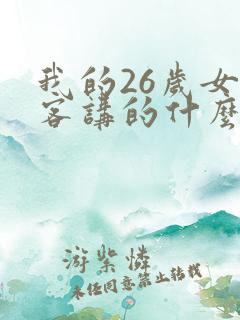 我的26歲女
客講的什麼
游紫憐
未经同意禁止转载